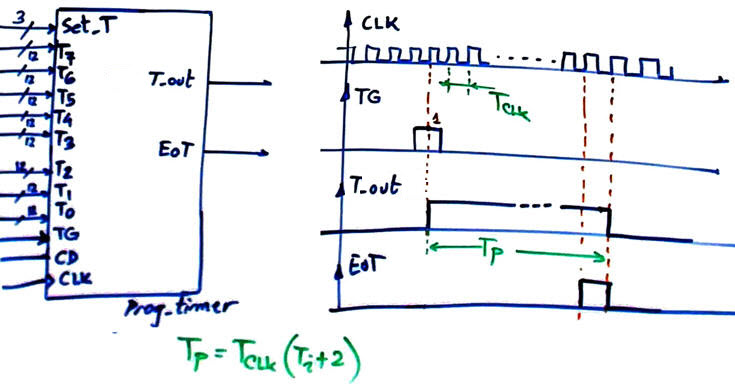 3 Set_T
12 T7
12 T6
12 T5
12 T4
12 T3
12 T2
12 T1
12 T0
TG
CD
CLK
T_out
EoT
Prog_timer
CLK
TCLK
TG
1
T_out
TP
EoT
TP = TCLK (Ti+2)